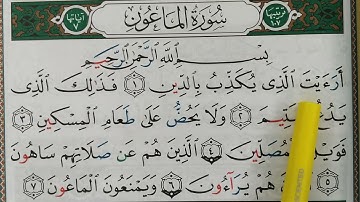 ترتيبها ١٠٧ سُورَةُ الْمَاعُونِ آياتها ٧
بِسْمِ اللَّهِ الرَّحْمَنِ الرَّحِيمِ
أَرَءَيْتَ الَّذِى يُكَذِّبُ بِالدِّينِ ١ فَذَلِكَ الَّذِى
يَدُعُّ الْيَتِيمَ ٢ وَلَا يَحُضُّ عَلَى طَعَامِ الْمِسْكِينِ ٣
فَوَيْلٌ لِلْمُصَلِّينَ ٤ الَّذِينَ هُمْ عَنْ صَلَاتِهِمْ سَاهُونَ
٥ هُمْ يُرَآءُونَ ٦ وَيَمْنَعُونَ الْمَاعُونَ ٧